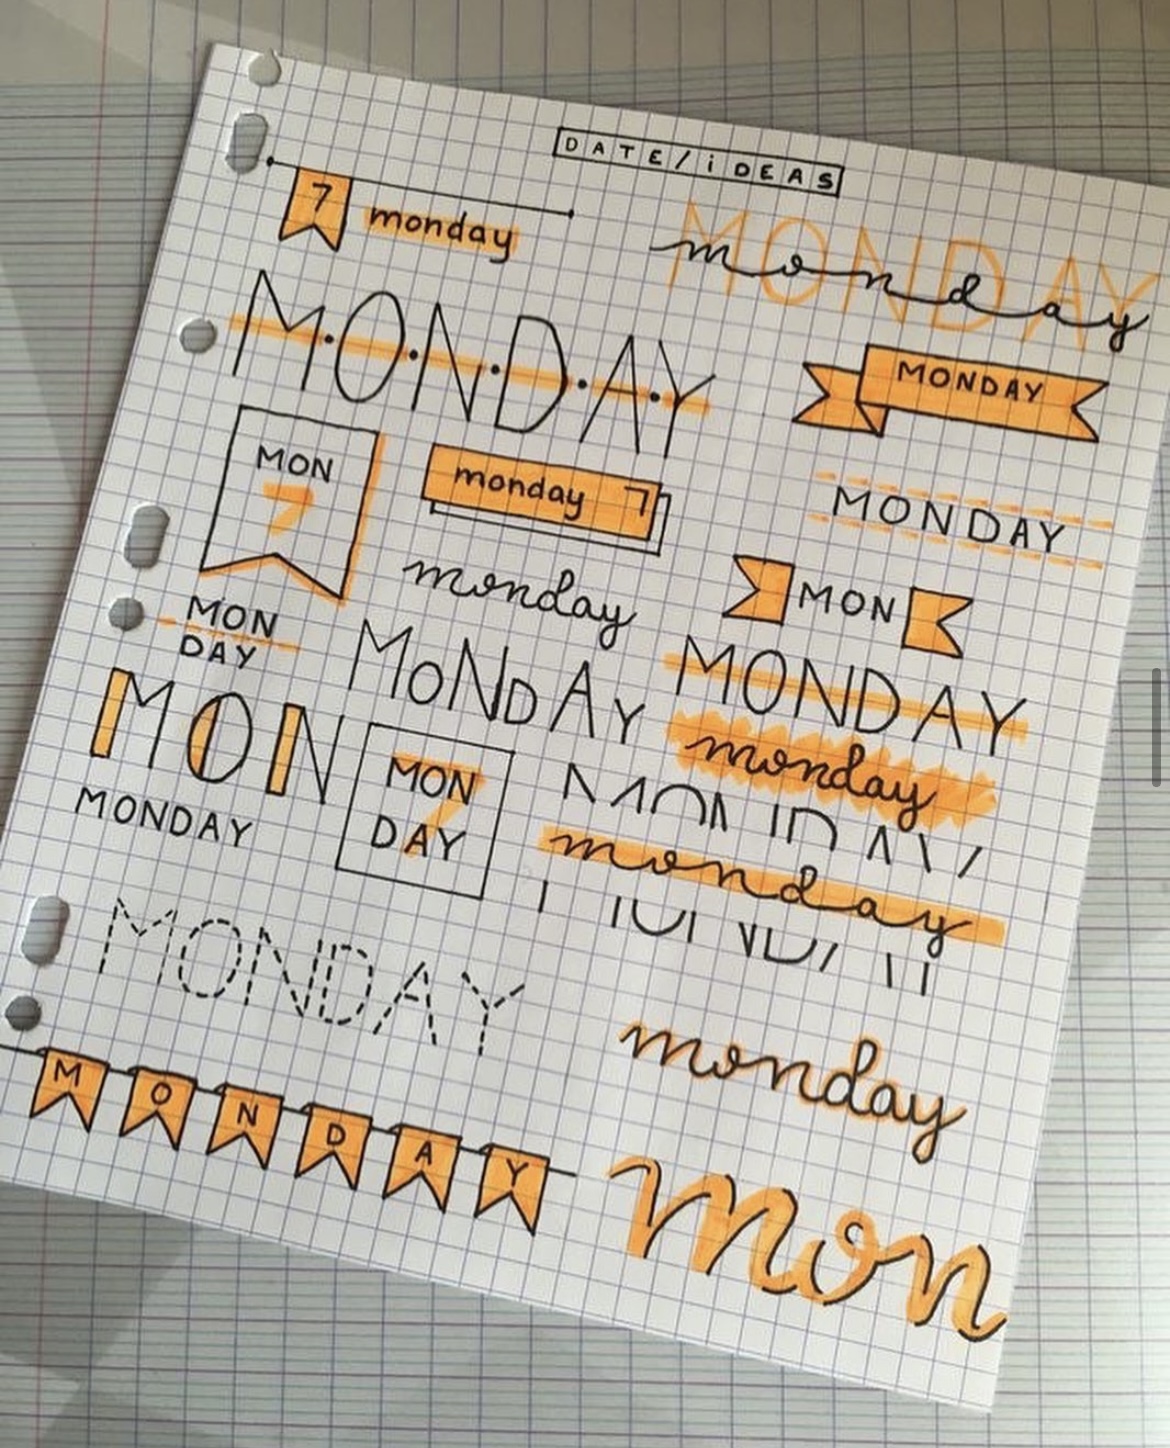 DATE/iDEAS
7 monday
MONDAY
monday
M·O·N·D·A·Y
MONDAY
MON
7
monday 7
MONDAY
monday
MON
MON
DAY
MoNdAy
MONDAY
MON
monday
MONDAY
7
MON
DAY
MONDAY
monday
MONDAY
monday
MONDAY
Mon